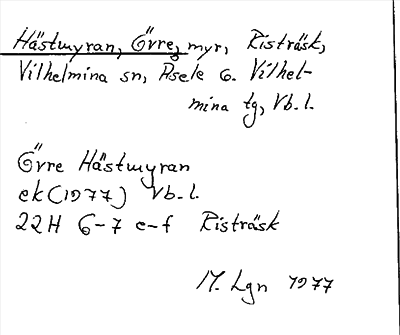 Hästmyran, Övre, myr, Risträsk,
Vilhelmina sn, Åsele o. Vilhel-
mina tg, Vb. l.
Övre Hästmyran
ek (1977) Vb. l.
22H 6-7 e-f Risträsk
M. Lgn 1977